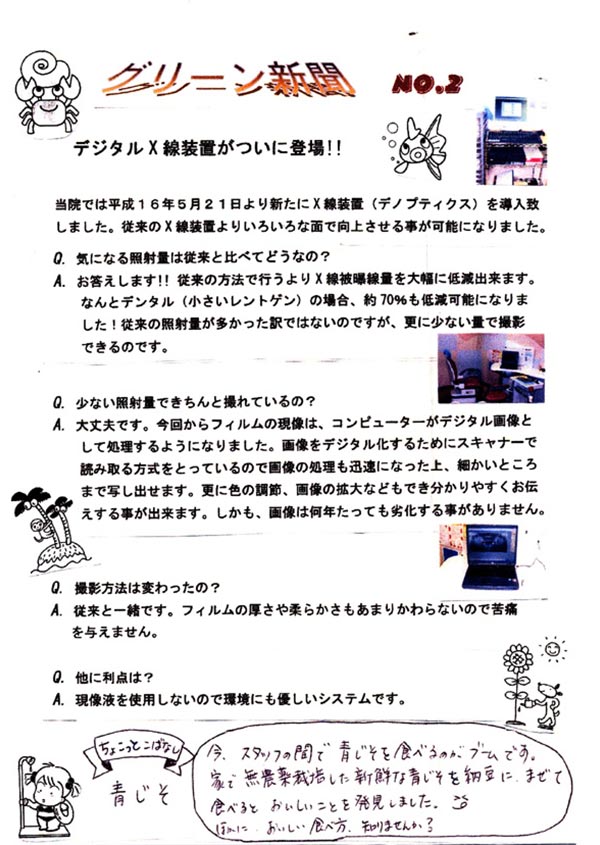 グリーン新聞 NO.2
デジタルX線装置がついに登場!!
当院では平成16年5月21日より新たにX線装置（デノプティクス）を導入致
しました。従来のX線装置よりいろいろな面で向上させる事が可能になりました。
Q. 気になる照射量は従来と比べてどうなの？
A. お答えします!! 従来の方法で行うよりX線被曝線量を大幅に低減出来ます。
なんとデンタル（小さいレントゲン）の場合、約70%も低減可能になりま
した！従来の照射量が多かった訳ではないのですが、更に少ない量で撮影
できるのです。
Q. 少ない照射量できちんと撮れているの？
A. 大丈夫です。今回からフィルムの現像は、コンピューターがデジタル画像と
して処理するようになりました。画像をデジタル化するためにスキャナーで
読み取る方式をとっているので画像の処理も迅速になった上、細かいところ
まで写し出せます。更に色の調節、画像の拡大などもでき分かりやすくお伝
えする事が出来ます。しかも、画像は何年たっても劣化する事がありません。
Q. 撮影方法は変わったの？
A. 従来と一緒です。フィルムの厚さや柔らかさもあまりかわらないので苦痛
を与えません。
Q. 他に利点は？
A. 現像液を使用しないので環境にも優しいシステムです。
ちょこっとこばなし
青じそ
今、スタッフの間で青じそを食べるのがブームです。
家で無農薬栽培した新鮮な青じそを納豆に、まぜて
食べると おいしいことを発見しました。
ほかに、おいしい食べ方、知りませんか？